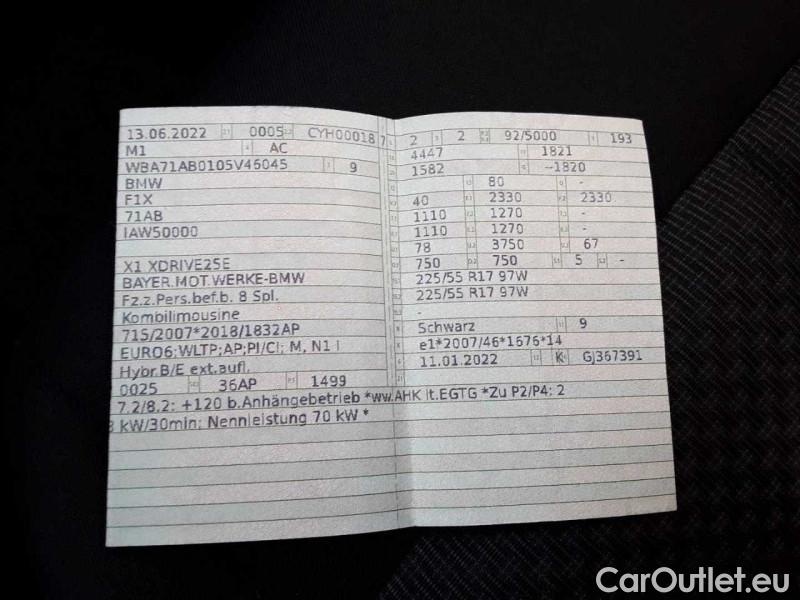 13.06.2022 0005 CYH00018 7
M1 AC
WBA71AB0105V46045 9
BMW
F1X
71AB
IAW50000
X1 XDRIVE25E
BAYER.MOT.WERKE-BMW
Fz.z.Pers.bef.b. 8 Spl.
Kombilimousine
715/2007*2018/1832AP
EURO6;WLTP;AP;PI/CI; M, N1 I
Hybr.B/E ext.aufl.
0025 36AP 1499
2 2 92/5000 193
4447 1821
1582 --1820
80 -
40 2330 2330
1110 1270 -
1110 1270 -
78 3750 67
750 750 5 -
225/55 R17 97W
225/55 R17 97W
-
Schwarz 9
e1*2007/46*1676*14
11.01.2022 K GJ367391
7.2/8.2: +120 b.Anhängebetrieb *ww.AHK lt.EGTG *Zu P2/P4: 2
kW/30min; Nennleistung 70 kW *
CarOutlet.eu